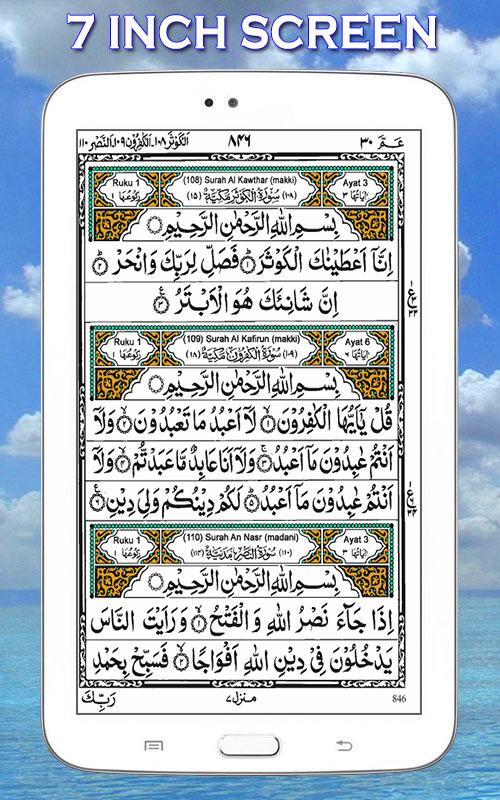 7 INCH SCREEN
عـمّ ٣٠ ٨٤٦ الكوثر ١٠٨۔الكٰفرون ١٠٩۔النصر ١١٠
Ruku 1 (108) Surah Al Kawthar (makki) Ayat 3
اٰيَاتُهَا ٣ (١٠٨) سُوْرَةُ الْكَوْثَرِ مَكِّيَّةٌ (١٥) رُكُوْعُهَا ١
بِسْمِ اللّٰهِ الرَّحْمٰنِ الرَّحِيْمِ
اِنَّاۤ اَعْطَيْنٰكَ الْكَوْثَرَ ۝١ فَصَلِّ لِرَبِّكَ وَانْحَرْ ۝٢
اِنَّ شَانِئَكَ هُوَ الْاَبْتَرُ ۝٣
Ruku 1 (109) Surah Al Kafirun (makki) Ayat 6
اٰيَاتُهَا ٦ (١٠٩) سُوْرَةُ الْكٰفِرُوْنَ مَكِّيَّةٌ (١٨) رُكُوْعُهَا ١
بِسْمِ اللّٰهِ الرَّحْمٰنِ الرَّحِيْمِ
قُلْ يٰۤاَيُّهَا الْكٰفِرُوْنَ ۝١ لَاۤ اَعْبُدُ مَا تَعْبُدُوْنَ ۝٢ وَلَاۤ
اَنْتُمْ عٰبِدُوْنَ مَاۤ اَعْبُدُ ۝٣ وَلَاۤ اَنَا عَابِدٌ مَّا عَبَدْتُّمْ ۝٤ وَلَاۤ
اَنْتُمْ عٰبِدُوْنَ مَاۤ اَعْبُدُ ۝٥ لَكُمْ دِيْنُكُمْ وَلِيَ دِيْنِ ۝٦
Ruku 1 (110) Surah An Nasr (madani) Ayat 3
اٰيَاتُهَا ٣ (١١٠) سُوْرَةُ النَّصْرِ مَدَنِيَّةٌ (١١٤) رُكُوْعُهَا ١
بِسْمِ اللّٰهِ الرَّحْمٰنِ الرَّحِيْمِ
اِذَا جَآءَ نَصْرُ اللّٰهِ وَالْفَتْحُ ۝١ وَرَاَيْتَ النَّاسَ
يَدْخُلُوْنَ فِيْ دِيْنِ اللّٰهِ اَفْوَاجًا ۝٢ فَسَبِّحْ بِحَمْدِ
846 منزل ٧ رَبِّكَ